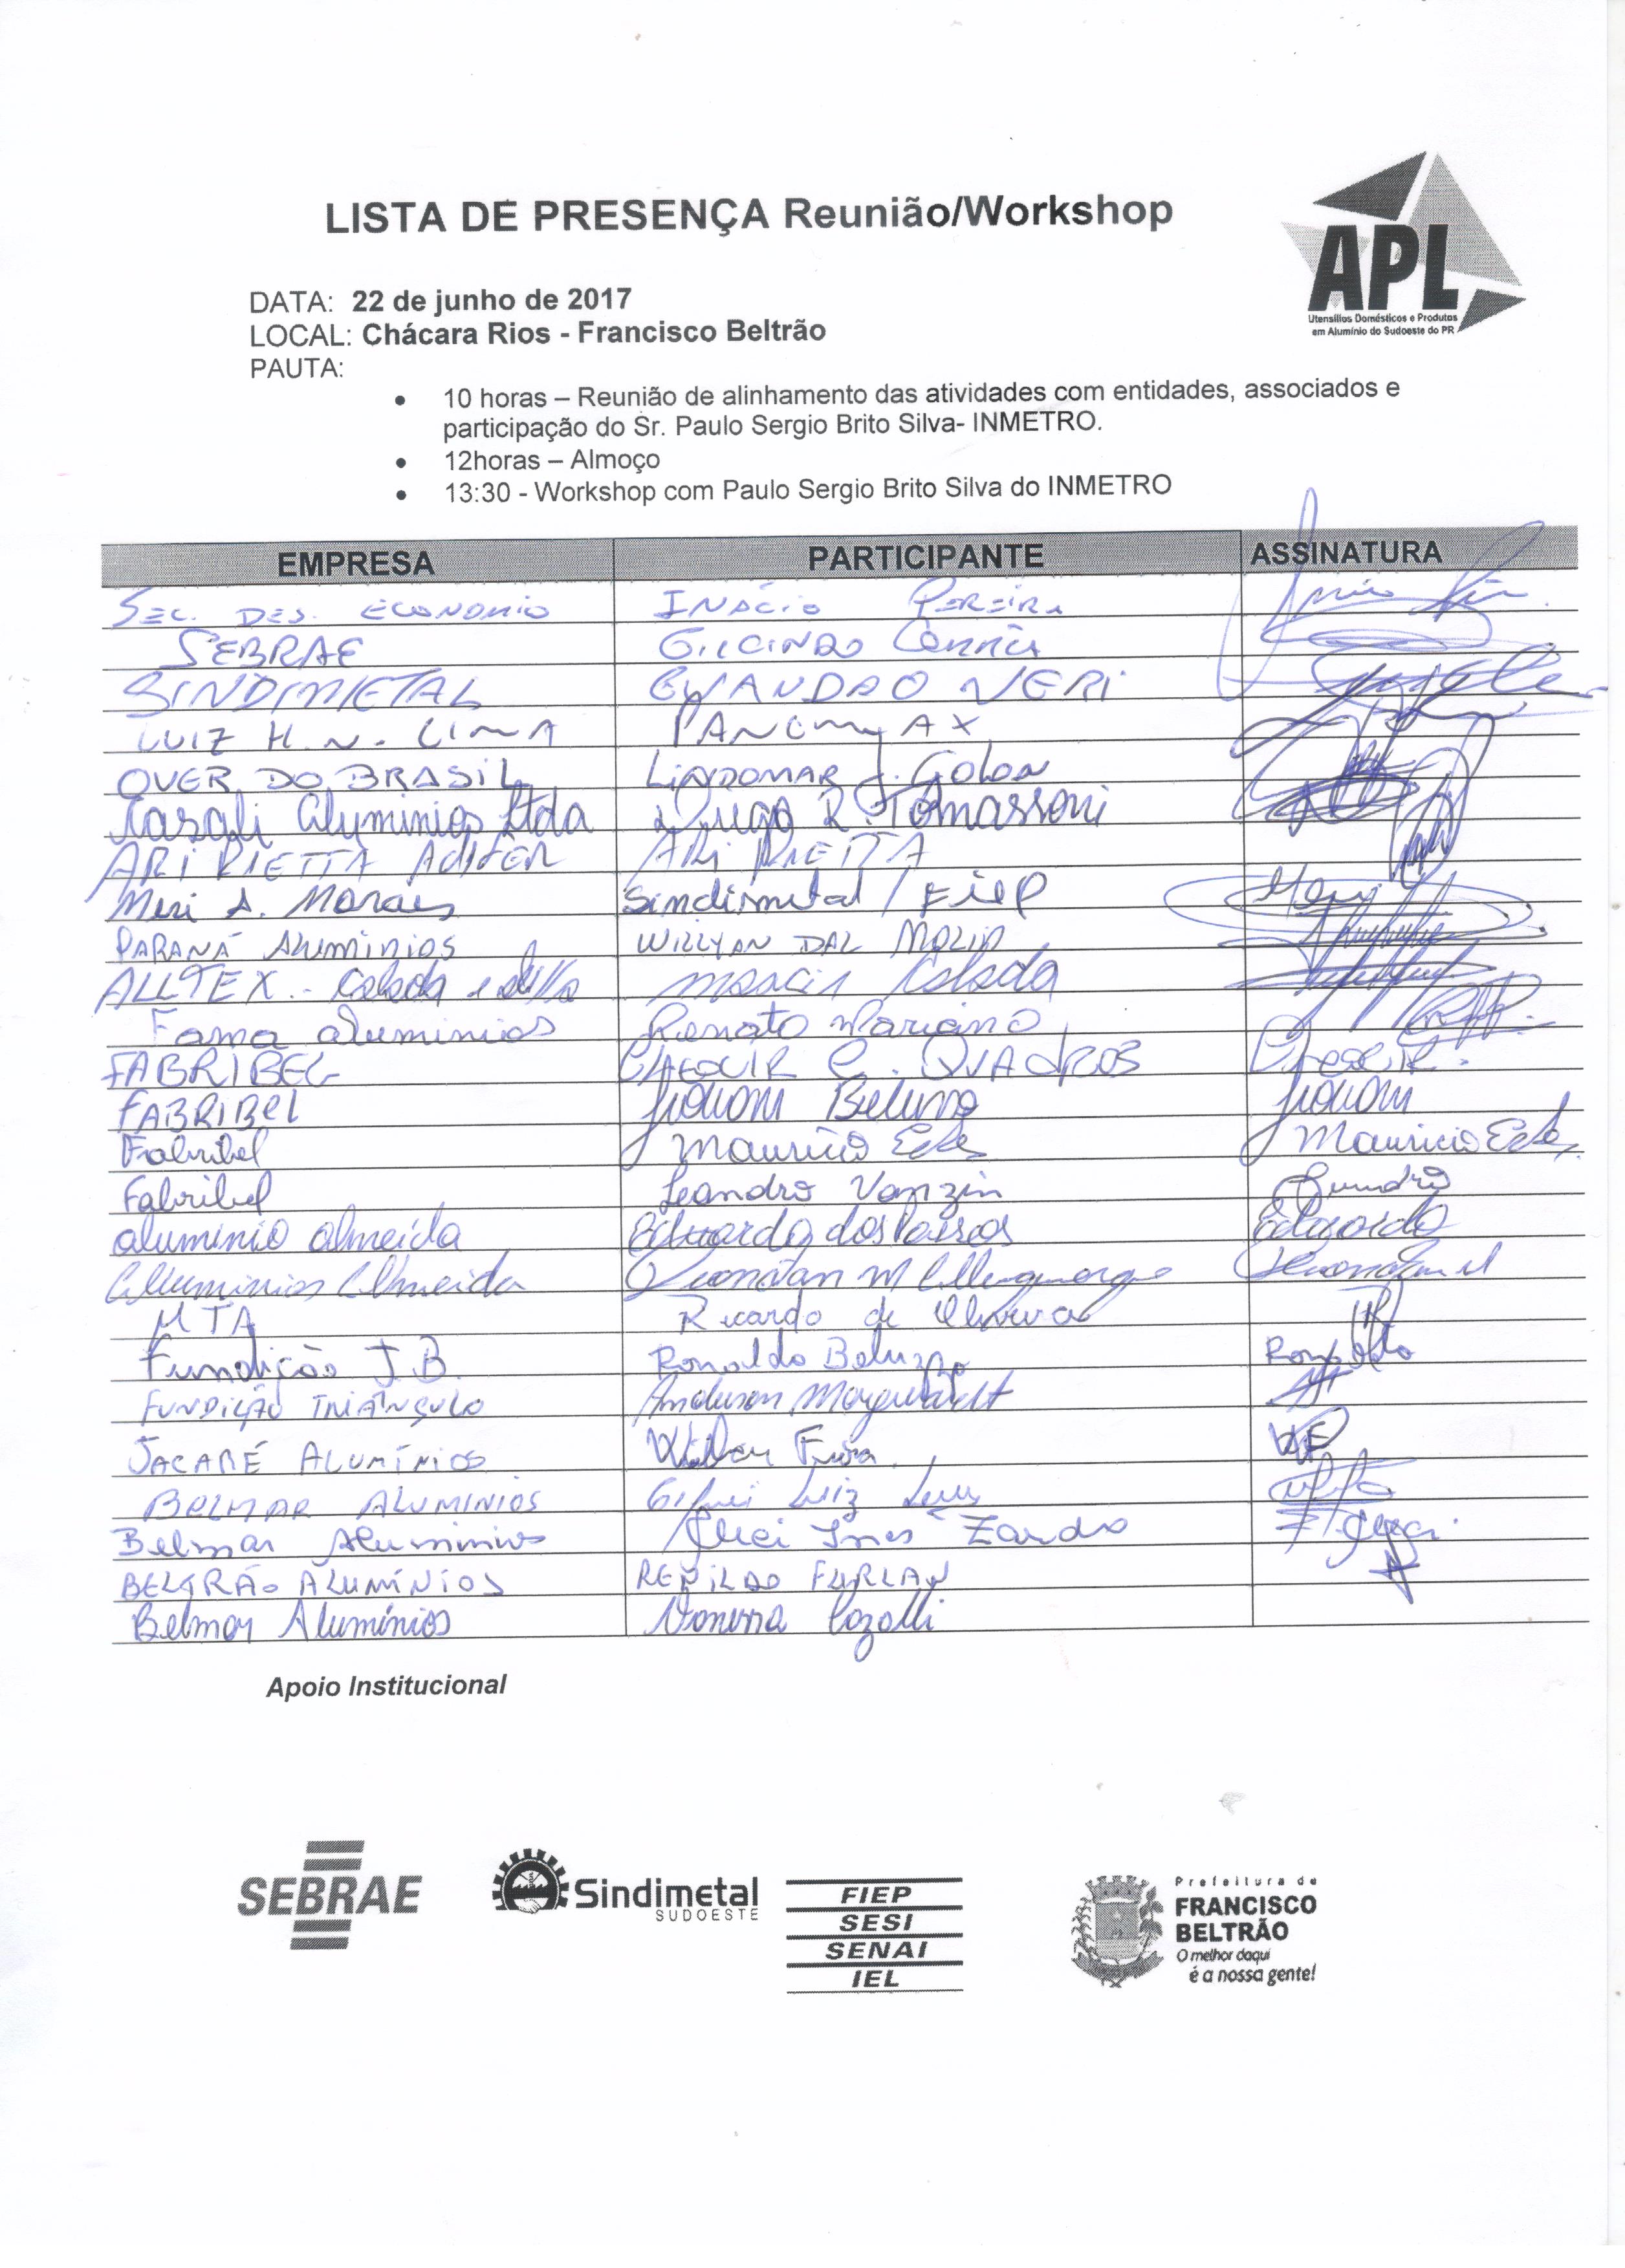 LISTA DE PRESENÇA Reunião/Workshop
APL
Utensílios Domésticos e Produtos
em Alumínio do Sudoeste do PR
DATA: 22 de junho de 2017
LOCAL: Chácara Rios - Francisco Beltrão
PAUTA:
• 10 horas – Reunião de alinhamento das atividades com entidades, associados e
participação do Sr. Paulo Sergio Brito Silva- INMETRO.
• 12horas – Almoço
• 13:30 - Workshop com Paulo Sergio Brito Silva do INMETRO
EMPRESA PARTICIPANTE ASSINATURA
SEC. DES. ECONOMIO INÁCIO PEREIRA
SEBRAE GILCINDO Corrêa
SINDIMETAL EVANDRO NERI
LUIZ H. N. LIMA PANEMAX
OVER DO BRASIL LINDOMAR J. Golon
Casali Aluminios Ltda R. Tomassoni
ARI PIETTA ARI PIETTA
Meri A. Moraes Sindimetal / Fiep
PARANÁ ALUMINIOS WILLYAN DAL MOLIN
ALLTEX - Calada
Fama aluminios Renato Mariano
FABRIBEL C. QUADROS
FABRIBEl
Fabribel Mauricio Mauricio
Fabribel Leandro Vanzin
aluminio almeida Eduardo dos Passos Eduardo
Alluminios Almeida
MTA Ricardo de Oliveira
Fundição J.B. Ronaldo Beluzzo Ronaldo
FUNDIÇÃO TRIÂNGULO Anderson
JACARÉ ALUMÍNIOS
BELMAR ALUMINIOS Luiz
Belmar Aluminios Ines Zardo
BELTRÃO ALUMÍNIOS RENILDO FURLAN
Belmar Alumínios
Apoio Institucional
SEBRAE
Sindimetal
SUDOESTE
FIEP
SESI
SENAI
IEL
Prefeitura de
FRANCISCO
BELTRÃO
O melhor daqui
é a nossa gente!